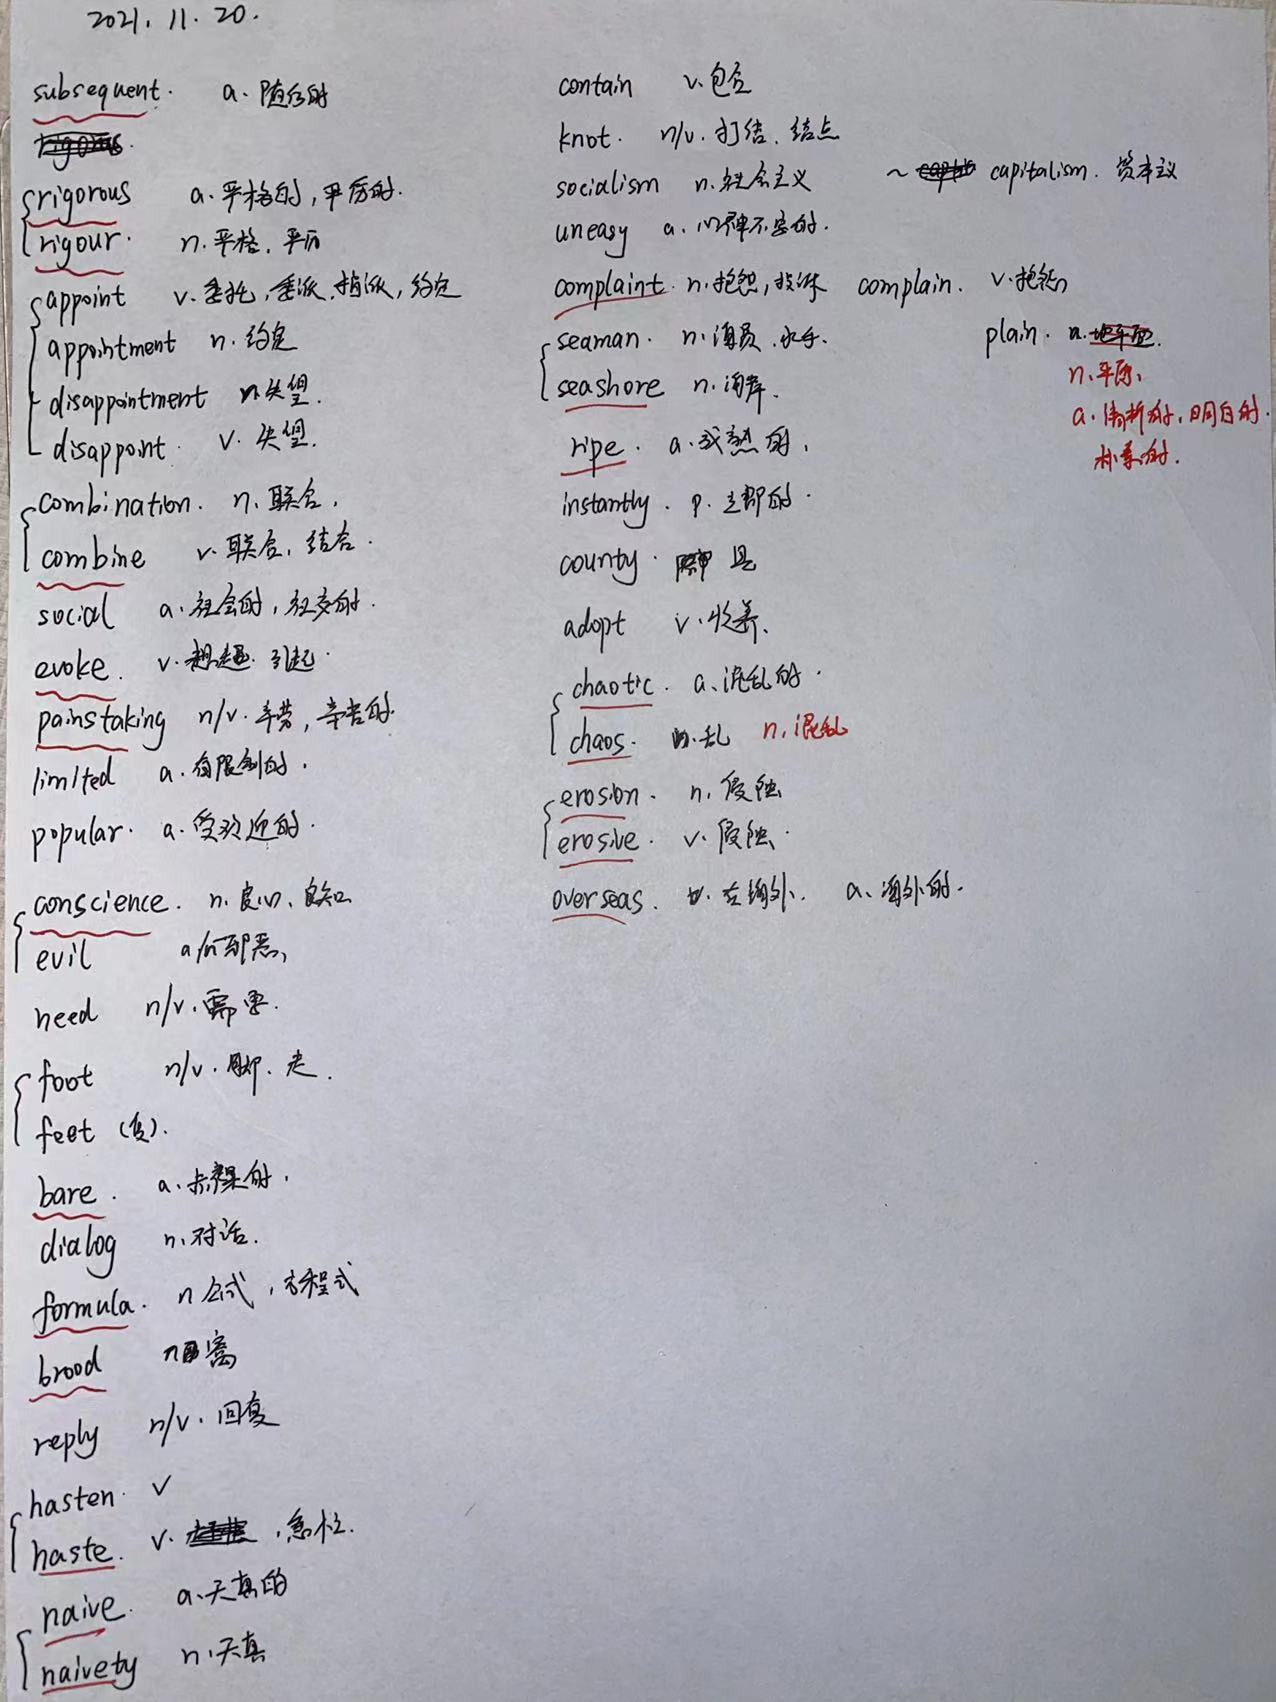 2021.11.20.
subsequent. a. 随后的
rigorous a. 严格的, 严厉的.
rigour. n. 严格. 严厉
appoint v. 委托, 委派, 指派, 约定
appointment n. 约定
disappointment n. 失望.
disappoint. v. 失望.
combination. n. 联合,
combine v. 联合, 结合.
social a. 社会的, 社交的.
evoke. v. 想起. 引起.
painstaking n/v. 辛劳, 辛苦的.
limited a. 有限制的.
popular. a. 受欢迎的.
conscience. n. 良心、良知
evil a/n 邪恶,
need n/v. 需要.
foot n/v. 脚. 走.
feet (复).
bare. a. 赤裸的.
dialog n. 对话.
formula. n 公式, 方程式
brood n 窝
reply n/v. 回复
hasten. v
haste. v. , 急忙.
naive. a. 天真的
naivety n. 天真
contain v. 包含
knot. n/v. 打结. 结点
socialism n. 社会主义 ~ capitalism. 资本主义
uneasy a. 心神不安的.
complaint. n. 抱怨, 投诉 complain. v. 抱怨
seaman. n. 海员. 水手. plain. a.
n. 平原,
seashore n. 海岸. a. 清晰的, 明白的.
朴素的.
ripe. a. 成熟的,
instantly. p. 立即的.
county. 县
adopt v. 收养.
chaotic. a. 混乱的.
chaos. 乱 n. 混乱
erosion. n. 侵蚀
erosive. v. 侵蚀.
overseas. 在海外. a. 海外的.